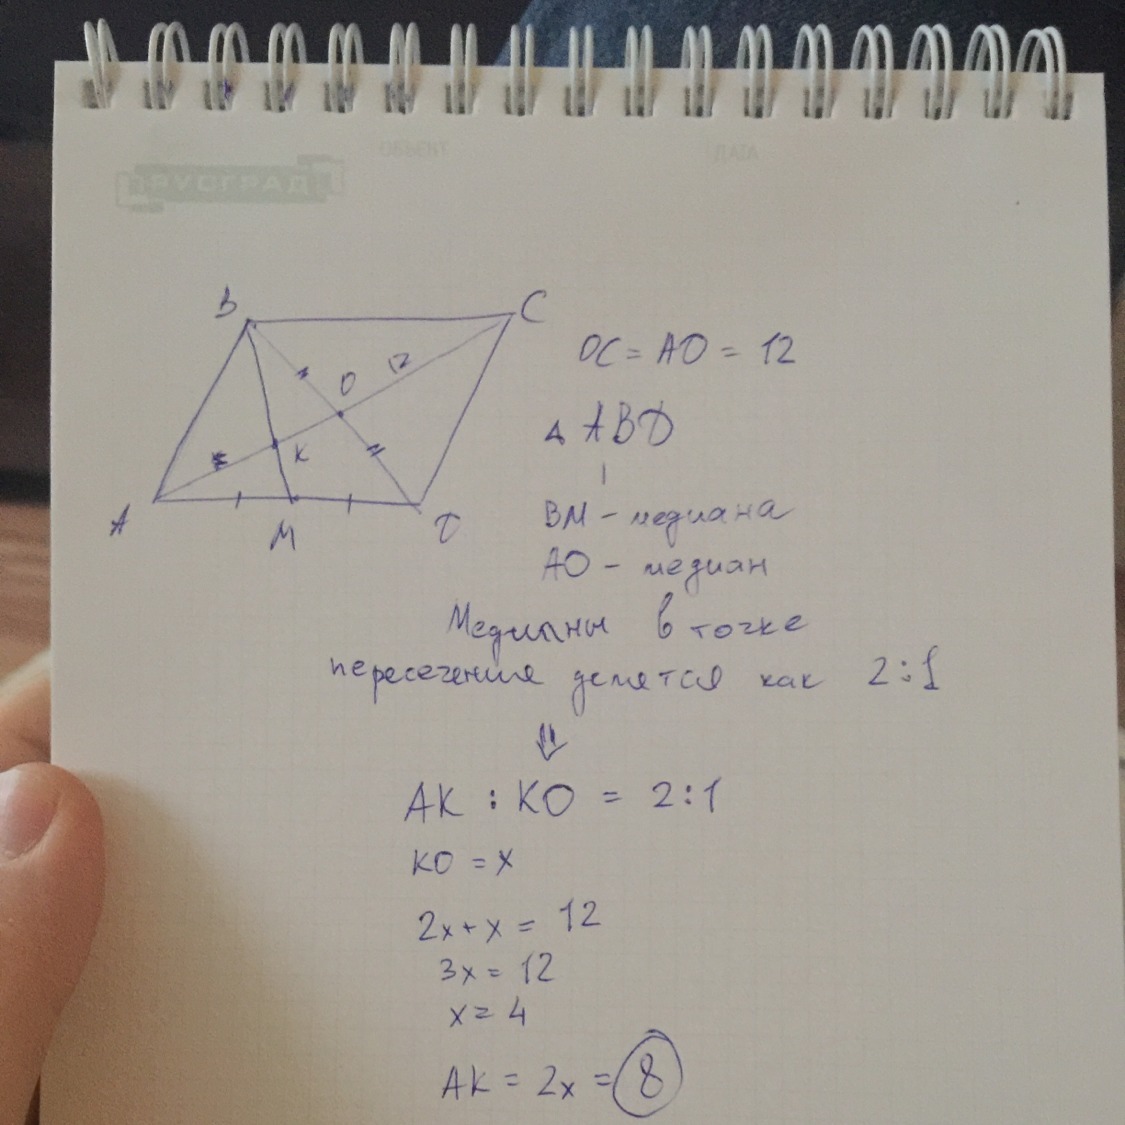 РУСГРАД
B
C
O
12
K
A
M
D
OC = AO = 12
△ ABD
BM - медиана
AO - медиан
Медианы в точке
пересечения делятся как 2:1
⇓
AK : KO = 2:1
KO = x
2x + x = 12
3x = 12
x = 4
AK = 2x = 8